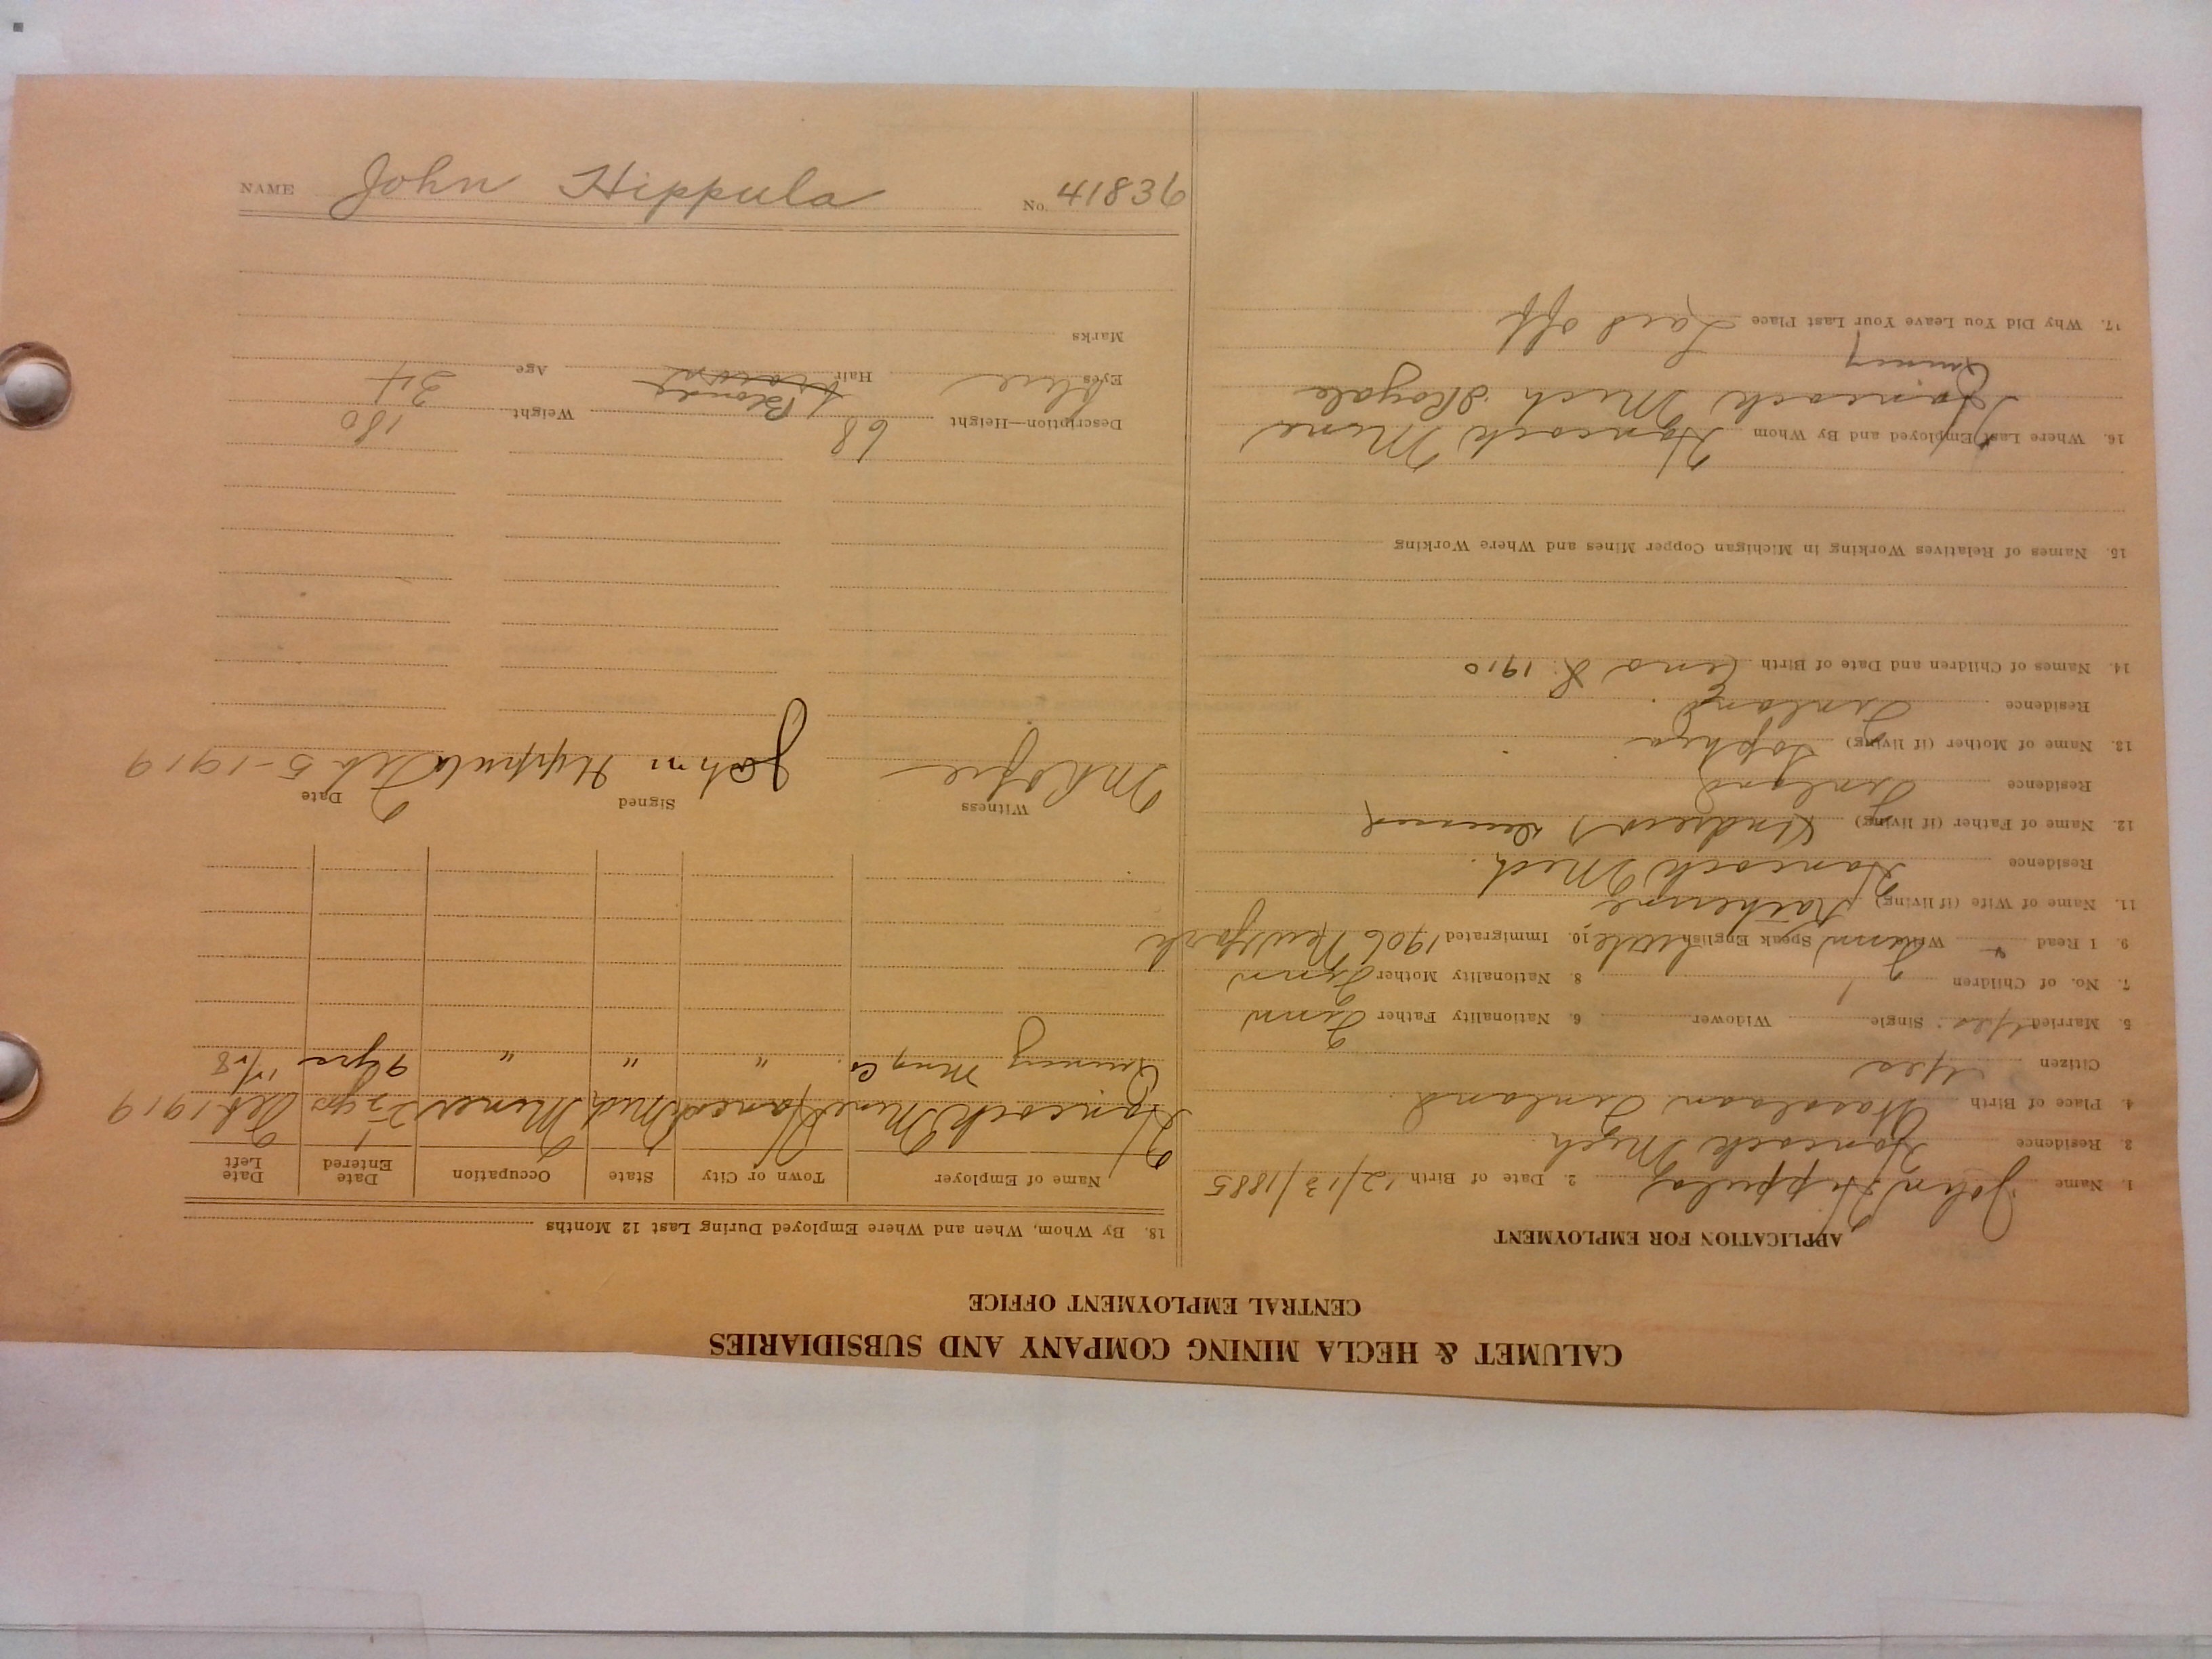 CALUMET & HECLA MINING COMPANY AND SUBSIDIARIES
CENTRAL EMPLOYMENT OFFICE
APPLICATION FOR EMPLOYMENT
1. Name John Hippula 2. Date of Birth 12/13/1885
3. Residence Hancock Mich
4. Place of Birth Finland
Citizen Yes
5. Married Yes Single Widower 6. Nationality Father Finn
7. No. of Children 1 8. Nationality Mother Finn
9. I Read " Write Finn Speak English Little 10. Immigrated 1906 New York
11. Name of Wife (if living) Katherine
Residence Hancock Mich.
12. Name of Father (if living) Andrew
Residence Finland
13. Name of Mother (if living) Sophia
Residence Finland
14. Names of Children and Date of Birth 1910
15. Names of Relatives Working in Michigan Copper Mines and Where Working
16. Where Last Employed and By Whom Hancock Mine
Hancock Mich Royale
Quincy
17. Why Did You Leave Your Last Place Laid off
18. By Whom, When and Where Employed During Last 12 Months
Name of Employer Town or City State Occupation Date Entered Date Left
Hancock Mine Hancock Mich Miner Feb 1919
Quincy Mng Co. " " "
Witness Signed Date
John Hyppula Feb 5-1919
Description—Height 68 Weight 180
Eyes Blue Hair Blonde Age 34
Marks
NAME John Hippula No. 41836